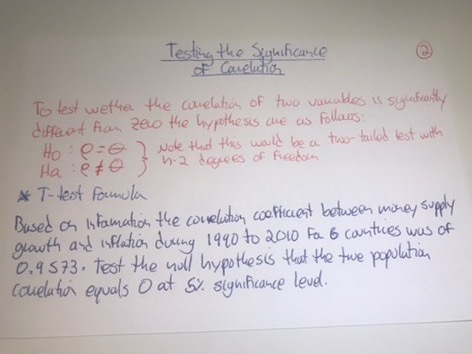 Testing the Significance
of Correlation
2
To test wether the correlation of two variables is significantly
different from zero the hypothesis are as follows:
Ho : ρ = 0
Ha : ρ ≠ 0
Note that this would be a two-tailed test with
n-2 degrees of freedom
* T-test Formula
Based on information the correlation coefficient between money supply
growth and inflation during 1990 to 2010 For 6 countries was of
0.9573. Test the null hypothesis that the true population
correlation equals 0 at 5% significance level.